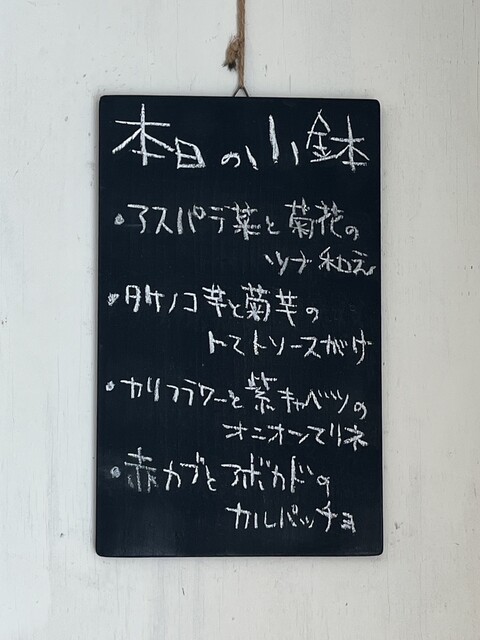 本日の小鉢
・アスパラ菜と菊花の
ツナ和え
・タケノコ芋と菊芋の
トマトソースがけ
・カリフラワーと紫キャベツの
オニオンマリネ
・赤カブとアボカドの
カルパッチョ